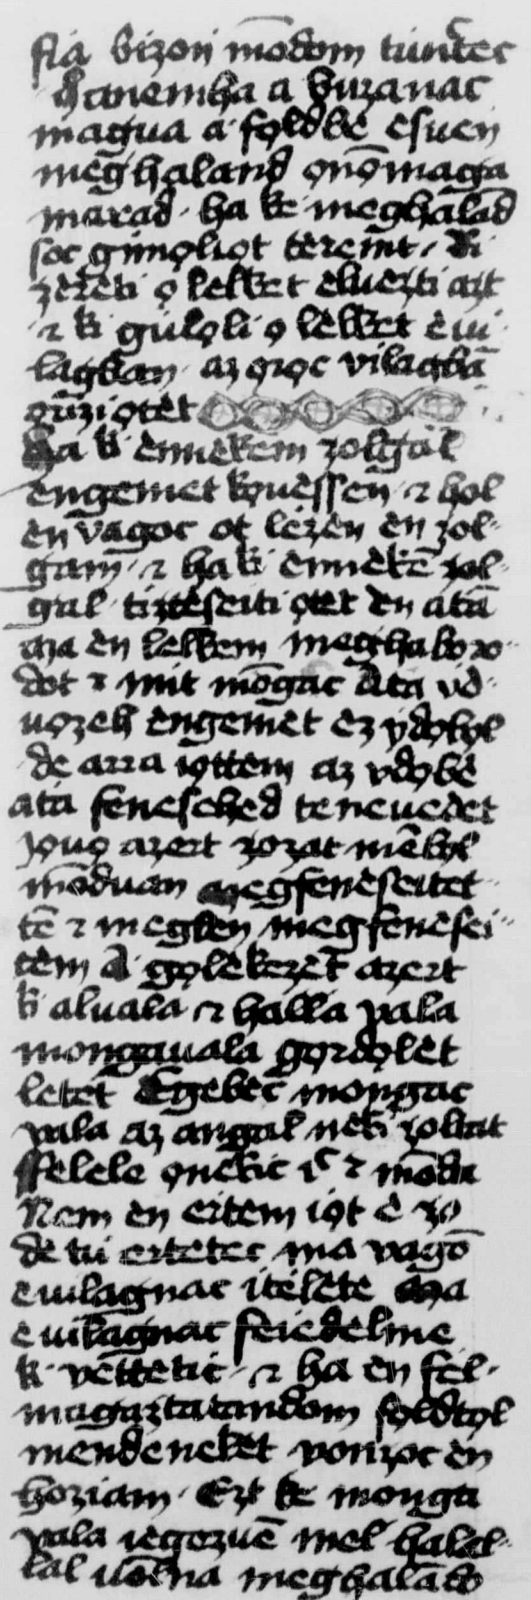 fia bizon mōdom tunectec
Hanemha a buzanac
magua a fǫldbe esuen
meghaland ǫnǭmaga
marad · ha ke meghaland
soc gimǫlčǫt teremt · Ki
zereti ǫ lelket eluezti azt
⁊ ki gúlǫli ǫ lelket e vi ·
lagban · az ǫrǫc vilagbā
ǫrizi ǫtèt
Ha ki ènnekem zolgal
engemet kǫuessen ⁊ hol
èn vagoc ot lèzèn èn zol ·
gam · ⁊ ha ki ènnekē zol ·
gal · tiztèseiti ǫtèt èn atā
Ma èn lelkem meghaboro ·
dot ⁊ mit mōgac Ata vd ·
uǫzeh engemet èz ydǫbǫl
de arra iǫttem az ydǫbe
Ata feńeséhed te neuedet
Iǫuǫ azert zozat mēbǫl
mōduan megfeńeseitèt ·
tē ⁊ meglen megfeńesei ·
tèm A golekezet azert
ki aluala ⁊ halla vala
mongauala gǫrdǫlèt
lètèt Egebec mongac
vala az angal nèki zoluāt
Felele ǫnekic iᶜ ⁊ mōda
Nem en ertem iǫt e zo
de tú ertètec ma vagō
e vilagnac itelete ma
e vilagnac feiedelme
ki vèttetic · ⁊ ha en fel ·
magaztatandom fǫldtǫl
mendeneket vonzoc èn
hoziam · Ezt ke monga
vala iegozuē mel halal ·
lal volna meghalādo